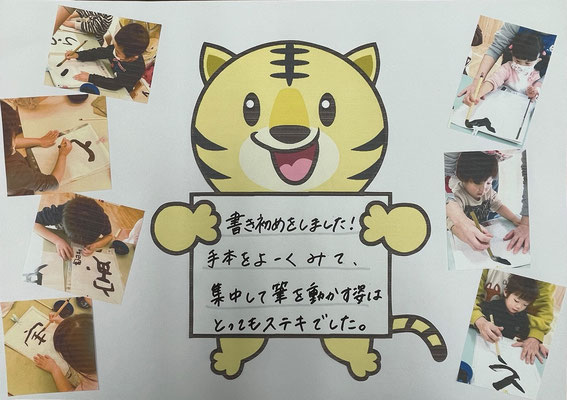 書き初めをしました!
手本をよーくみて、
集中して筆を動かす姿は
とってもステキでした。